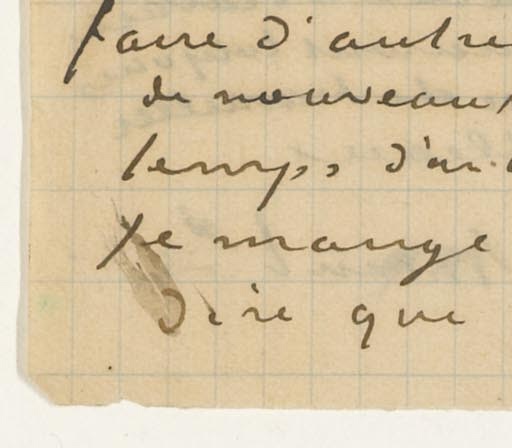 faire d'autre
de nouveaux
temps, d'ar
Je mange
dire que